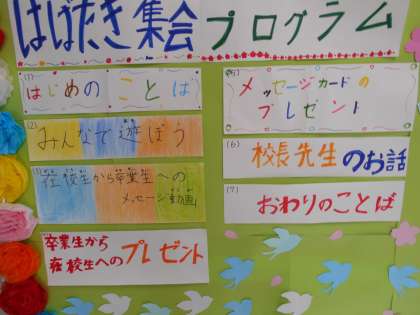 はばたき集会プログラム
(1)
はじめのことば
(2)
みんなで遊ぼう
(3)
在校生から卒業生への
メッセージ動画
卒業生から
在校生へのプレゼント
(5)
メッセージカードの
プレゼント
(6)
校長先生のお話
(7)
おわりのことば